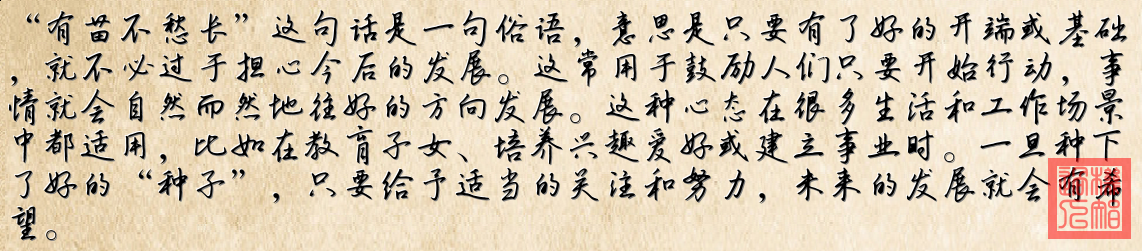 “有苗不愁长”这句话是一句俗语，意思是只要有了好的开端或基础
，就不必过于担心今后的发展。这常用于鼓励人们只要开始行动，事
情就会自然而然地往好的方向发展。这种心态在很多生活和工作场景
中都适用，比如在教育子女、培养兴趣爱好或建立事业时。一旦种下
了好的“种子”，只要给予适当的关注和努力，未来的发展就会有希
望。